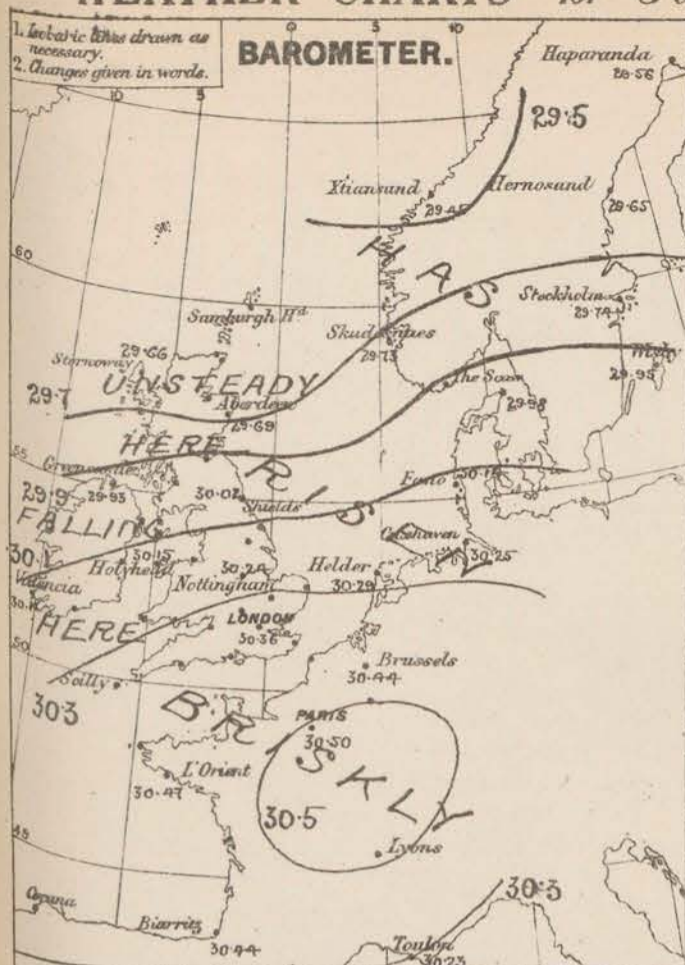 WEATHER CHARTS for
1. Isobaric lines drawn as
necessary.
2. Changes given in words.
BAROMETER.
10
5
0
5
10
Haparanda
29.56
29.5
Xtiansund
Hernosand
29.45
29.65
60
HAS
Sumburgh Hd
Stockholm
29.74
Skudesnaes
29.73
Stornoway
29.66
Wisby
29.95
29.7
UNSTEADY
Aberdeen
29.69
The Scaw
29.98
HERE
55
Greencastle
29.93
29.9
RISEN
30.02
Shields
Fano
30.14
FALLING
30.1
30.15
Holyhead
30.24
Nottingham
Helder
30.29
Cuxhaven
30.25
Valencia
HERE
LONDON
30.36
50
Brussels
30.44
Scilly
30.3
BRISKLY
PARIS
30.50
L'Orient
30.47
30.5
Lyons
45
30.3
Coruna
Biarritz
30.44
Toulon
30.23